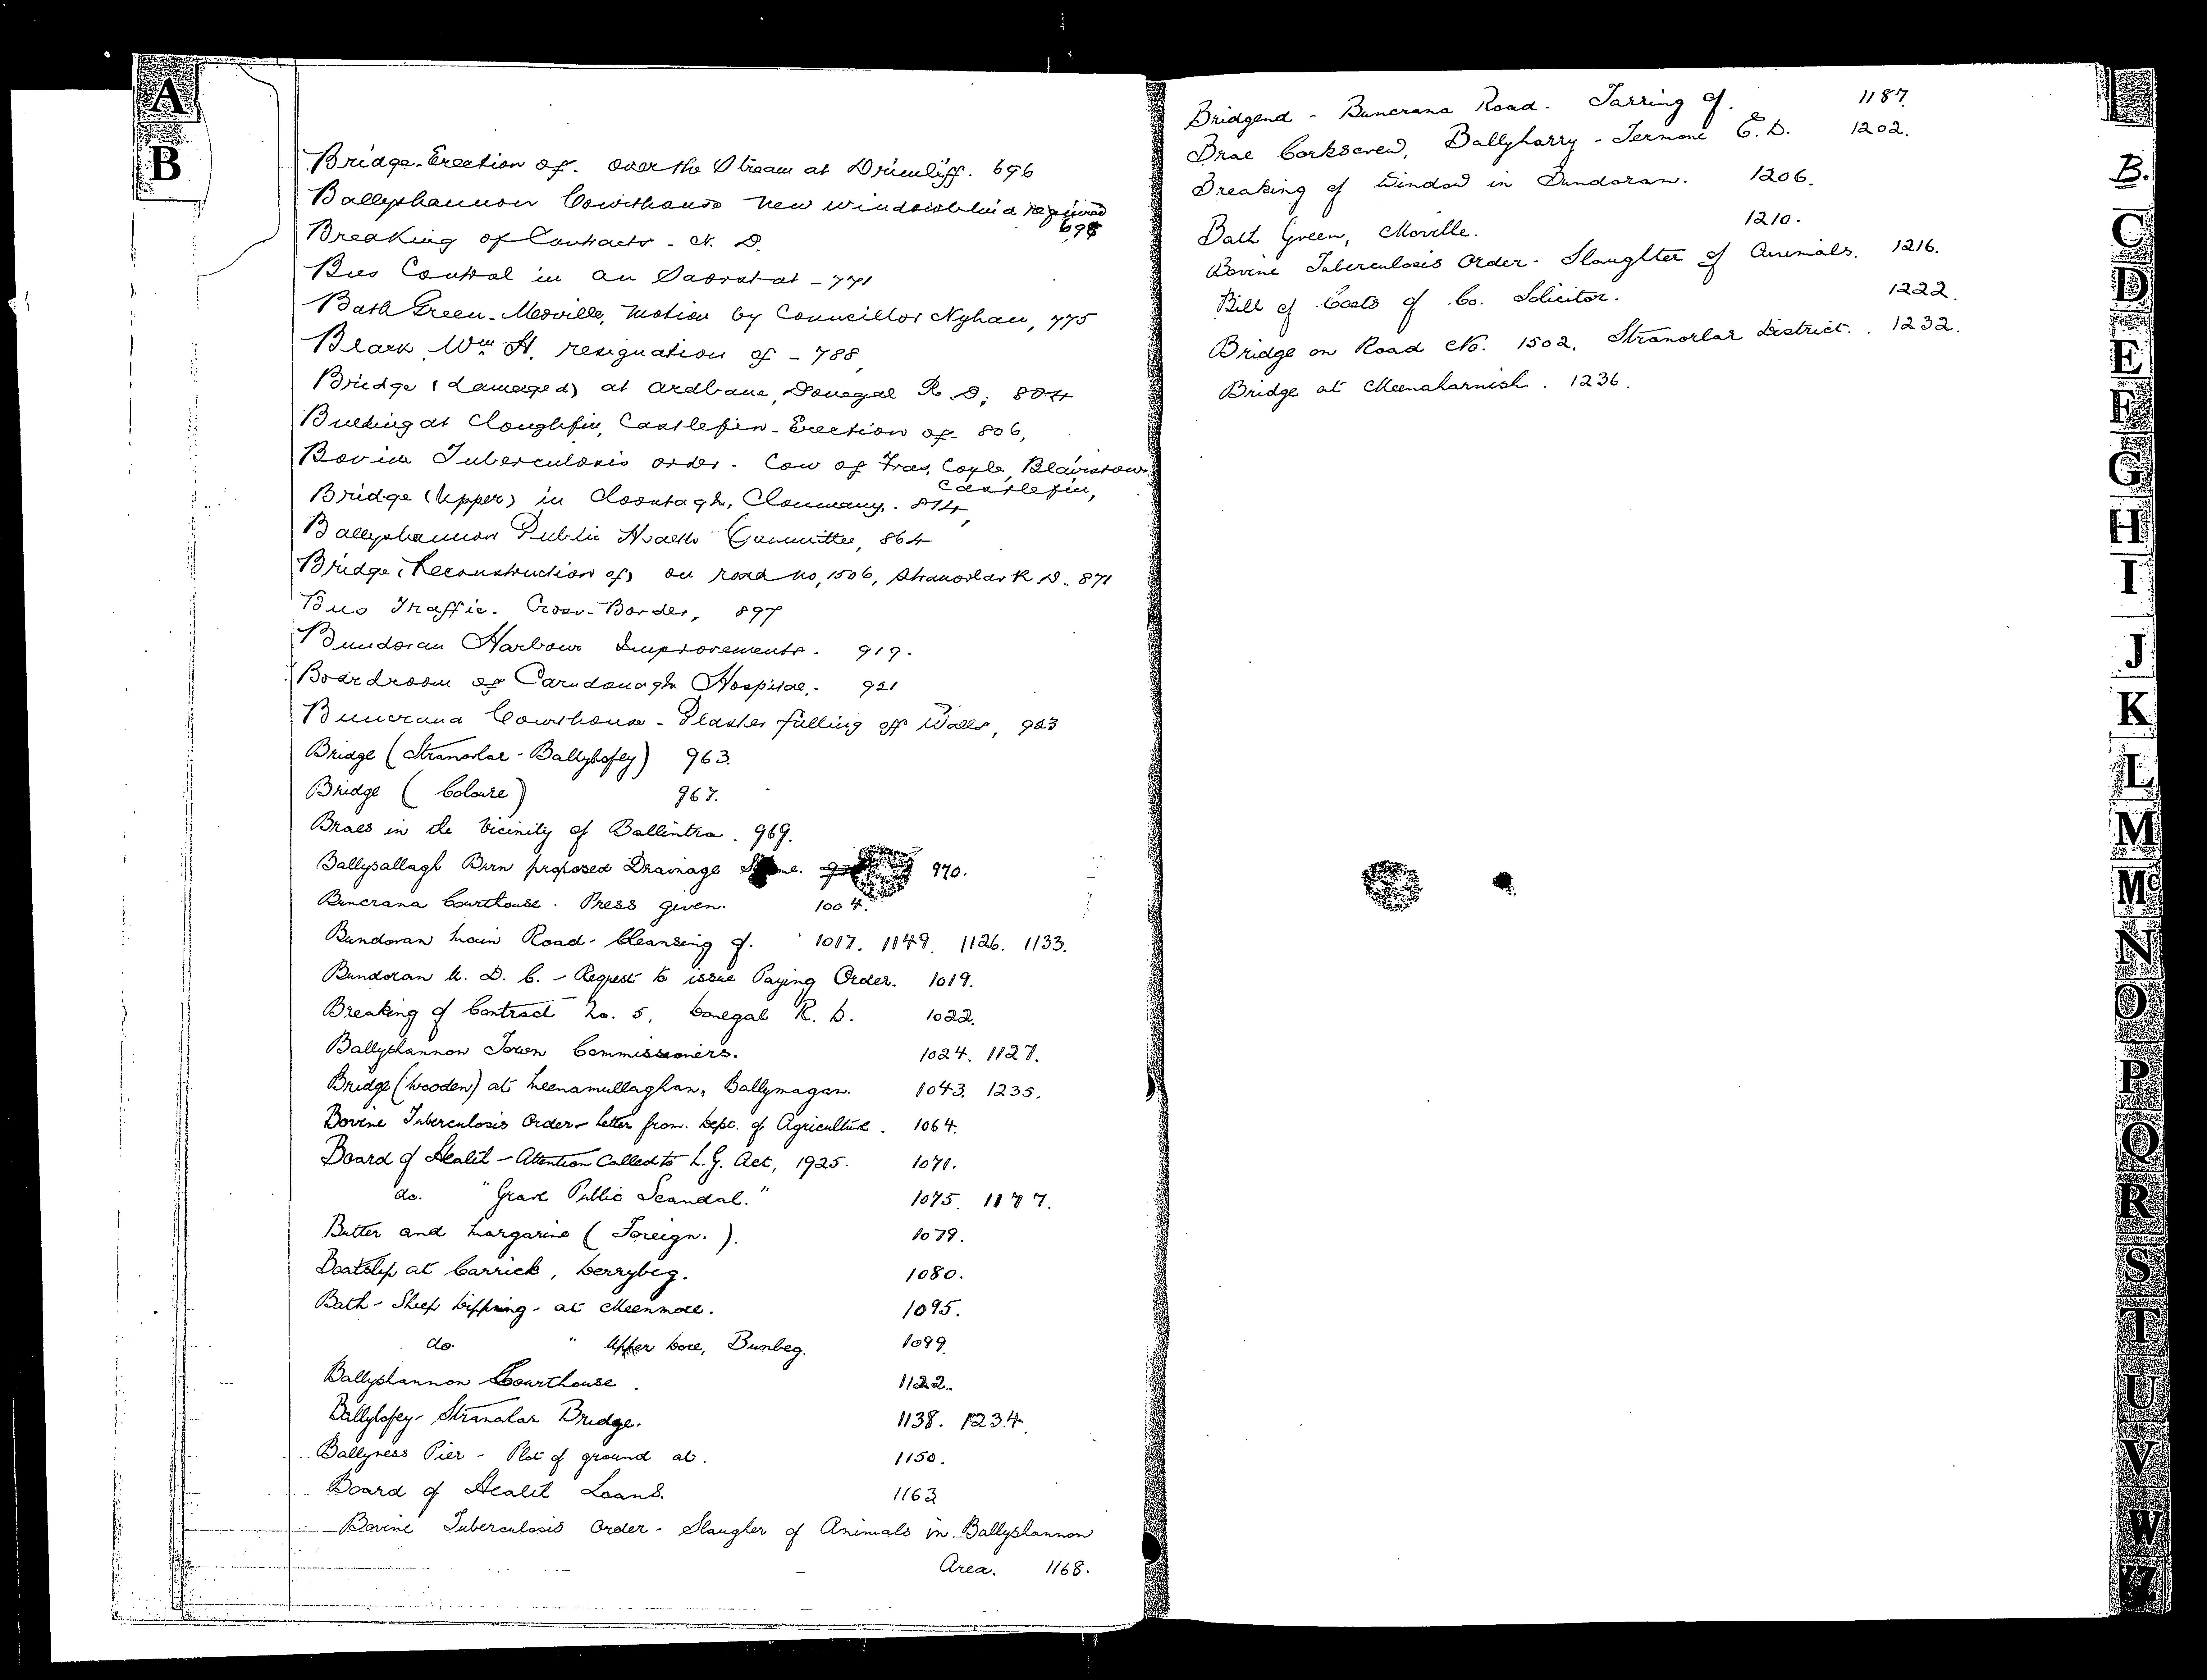 A
B
Bridge-Erection of. over the Stream at Drimliff. 696
Ballyshannon Courthouse new windowblind required
698
Breaking of Contracts - N. D.
Bus Control in an Saorstat - 771
Bath Green - Moville, motion by Councillor Nyhan, 775
Black, Wm H, resignation of - 788,
Bridge (damaged) at Ardbane, Donegal R. D; 804
Building at Cloughfin, Castlefin - Erection of - 806,
Bovine Tuberculosis order - Cow of Fras, Coyle,
Castlefin,
Bridge (Upper) in Cloontagh, Clonmany. 814,
Ballyshannon Public Health Committee, 864
Bridge (Reconstruction of) on road no, 1506, Stranorlar R D.. 871
Bus Traffic. Cross-Border, 897
Bundoran Harbour Improvements - 919.
Boardroom of Carndonagh Hospital,- 921
Buncrana Courthouse - Plaster falling off Walls, 923
Bridge (Stranorlar - Ballybofey) 963.
Bridge ( ) 967.
Braes in the Vicinity of Ballintra. 969.
Ballysallagh Burn proposed Drainage 970.
Buncrana Courthouse. Press given. 1004.
Bundoran Main Road - Cleansing of. 1017. 1149. 1126. 1133.
Bundoran U. D. C. - Request to issue Paying Order. 1019.
Breaking of Contract No. 5, Donegal R. D. 1022.
Ballyshannon Town Commissioners. 1024. 1127.
Bridge (Wooden) at Meenamullaghan, Ballymagan. 1043. 1235.
Bovine Tuberculosis Order - Letter from. Dept. of Agriculture. 1064.
Board of Health - Attention Called to L.G. Act, 1925. 1071.
do. "Grave Public Scandal." 1075. 1177.
Butter and Margarine (Foreign.). 1079.
Boatslip at Carrick, Derrybeg. 1080.
Bath - Sheep Dipping - at Meenmore. 1095.
do. " Upper Dore, Bunbeg. 1099.
Ballyshannon Courthouse. 1122.
Ballybofey - Stranorlar Bridge. 1138. 1234.
Ballyness Pier - Plot of ground at. 1150.
Board of Health Loans. 1163
Bovine Tuberculosis Order - Slaugher of Animals in Ballyshannon
Area. 1168.
Bridgend - Buncrana Road - Tarring of. 1187.
Brae Corkscrew, Ballyharry - Termone E. D. 1202.
Breaking of Window in Bundoran. 1206.
Bath Green, Moville. 1210.
Bovine Tuberculosis Order - Slaughter of Animals. 1216.
Bill of Costs of Co. Solicitor. 1222.
Bridge on Road No. 1502, Stranorlar District. 1232.
Bridge at Meenaharnish. 1236.
B.
C
D
E
F
G
H
I
J
K
L
M
Mc
N
O
P
Q
R
S
T
U
V
W